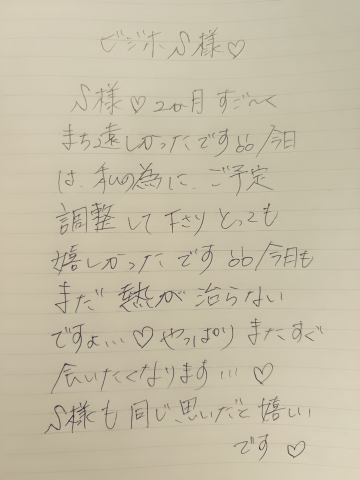 ビジホ S様♡
S様♡ 2か月 すご〜く
まち遠しかったです♡♡今日
は、私の為に、ご予定
調整して下さり とっても
嬉しかったです♡♡今日も
まだ 熱が 治らない
ですよ…♡ やっぱり またすぐ
会いたくなります…♡
S様も 同じ思いだと 嬉しい
です♡